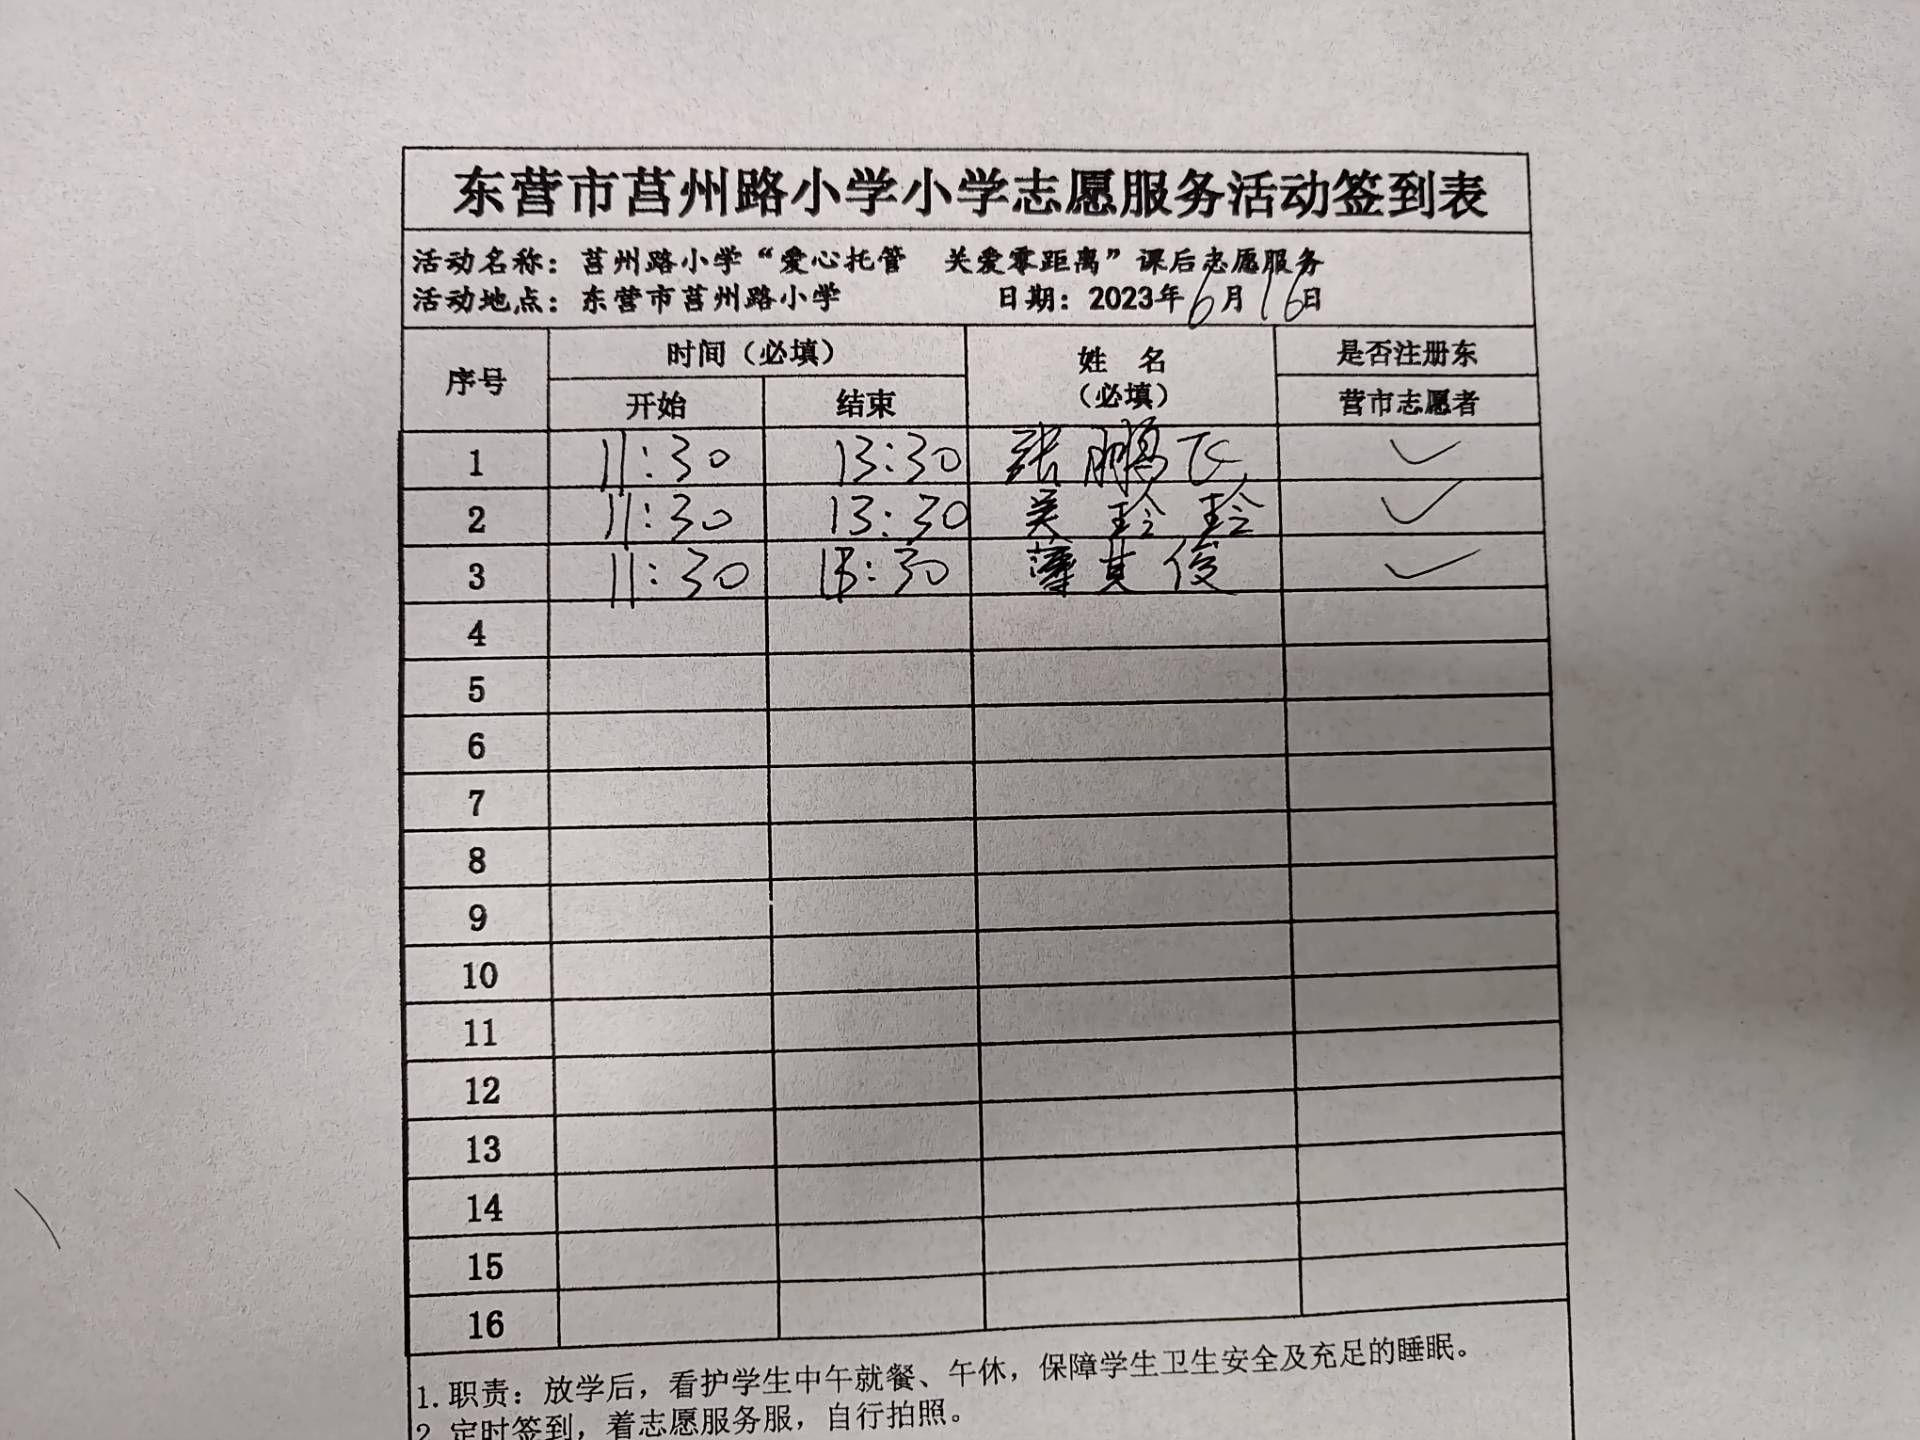 东营市莒州路小学小学志愿服务活动签到表
活动名称：莒州路小学“爱心托管　关爱零距离”课后志愿服务
活动地点：东营市莒州路小学　日期：2023年6月16日
序号 时间（必填） 姓 名（必填） 是否注册东营市志愿者
开始 结束
1 11:30 13:30 张鹏飞 ✓
2 11:30 13:30 吴玲玲 ✓
3 11:30 13:30 薄其俊 ✓
4
5
6
7
8
9
10
11
12
13
14
15
16
1.职责：放学后，看护学生中午就餐、午休，保障学生卫生安全及充足的睡眠。
2.定时签到，着志愿服务服，自行拍照。